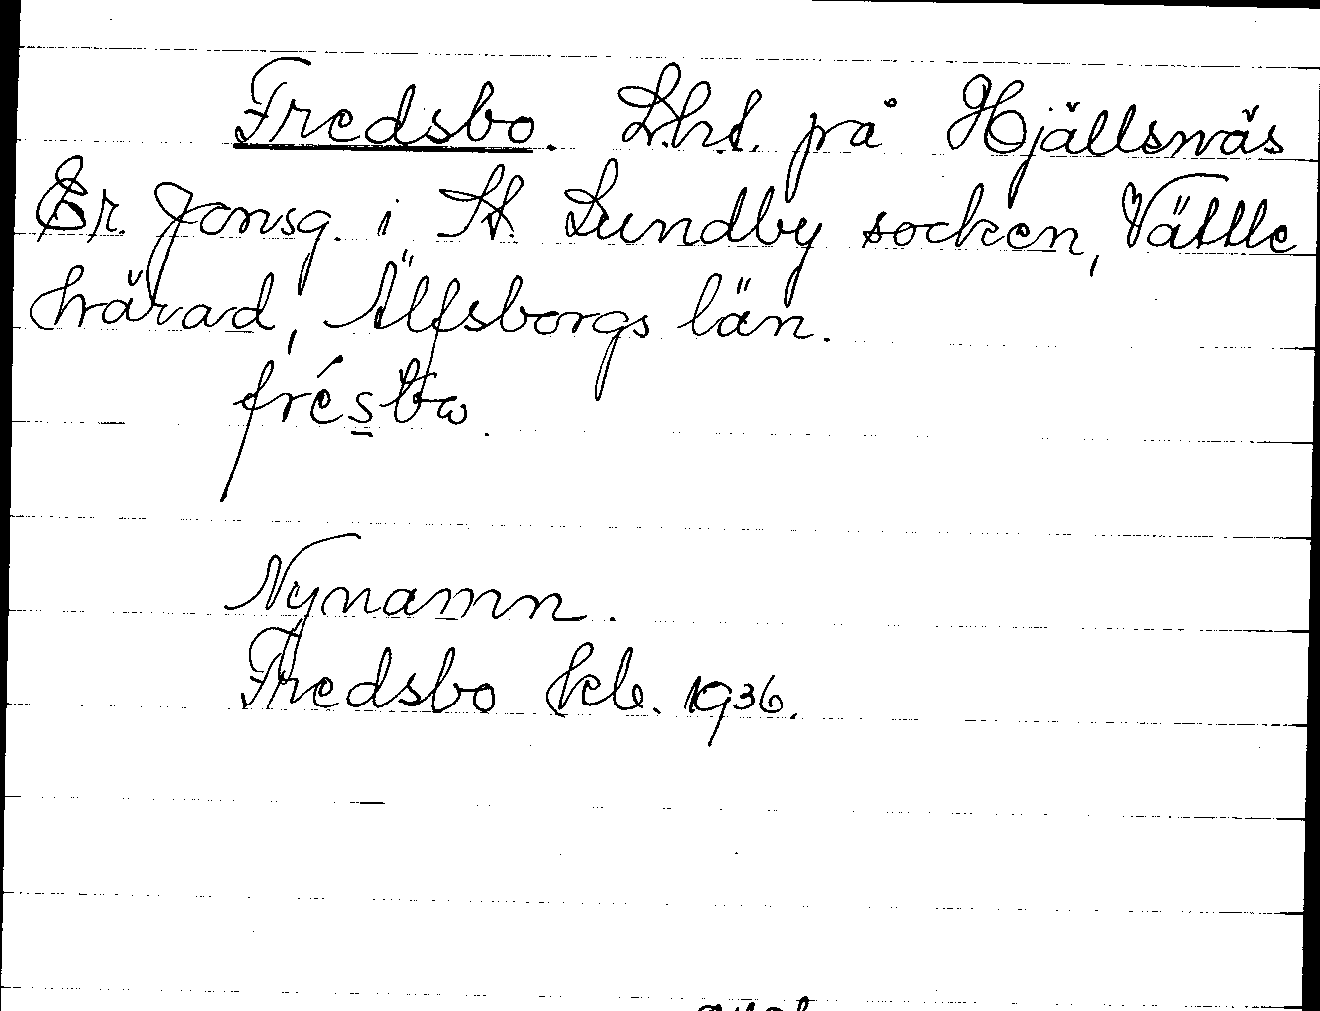 Fredsbo. Lht. på Hjällsnäs
Er. Jonsg. i St. Lundby socken, Vättle
härad, Älfsborgs län.
frésbω
Nynamn.
Fredsbo kb. 1936.